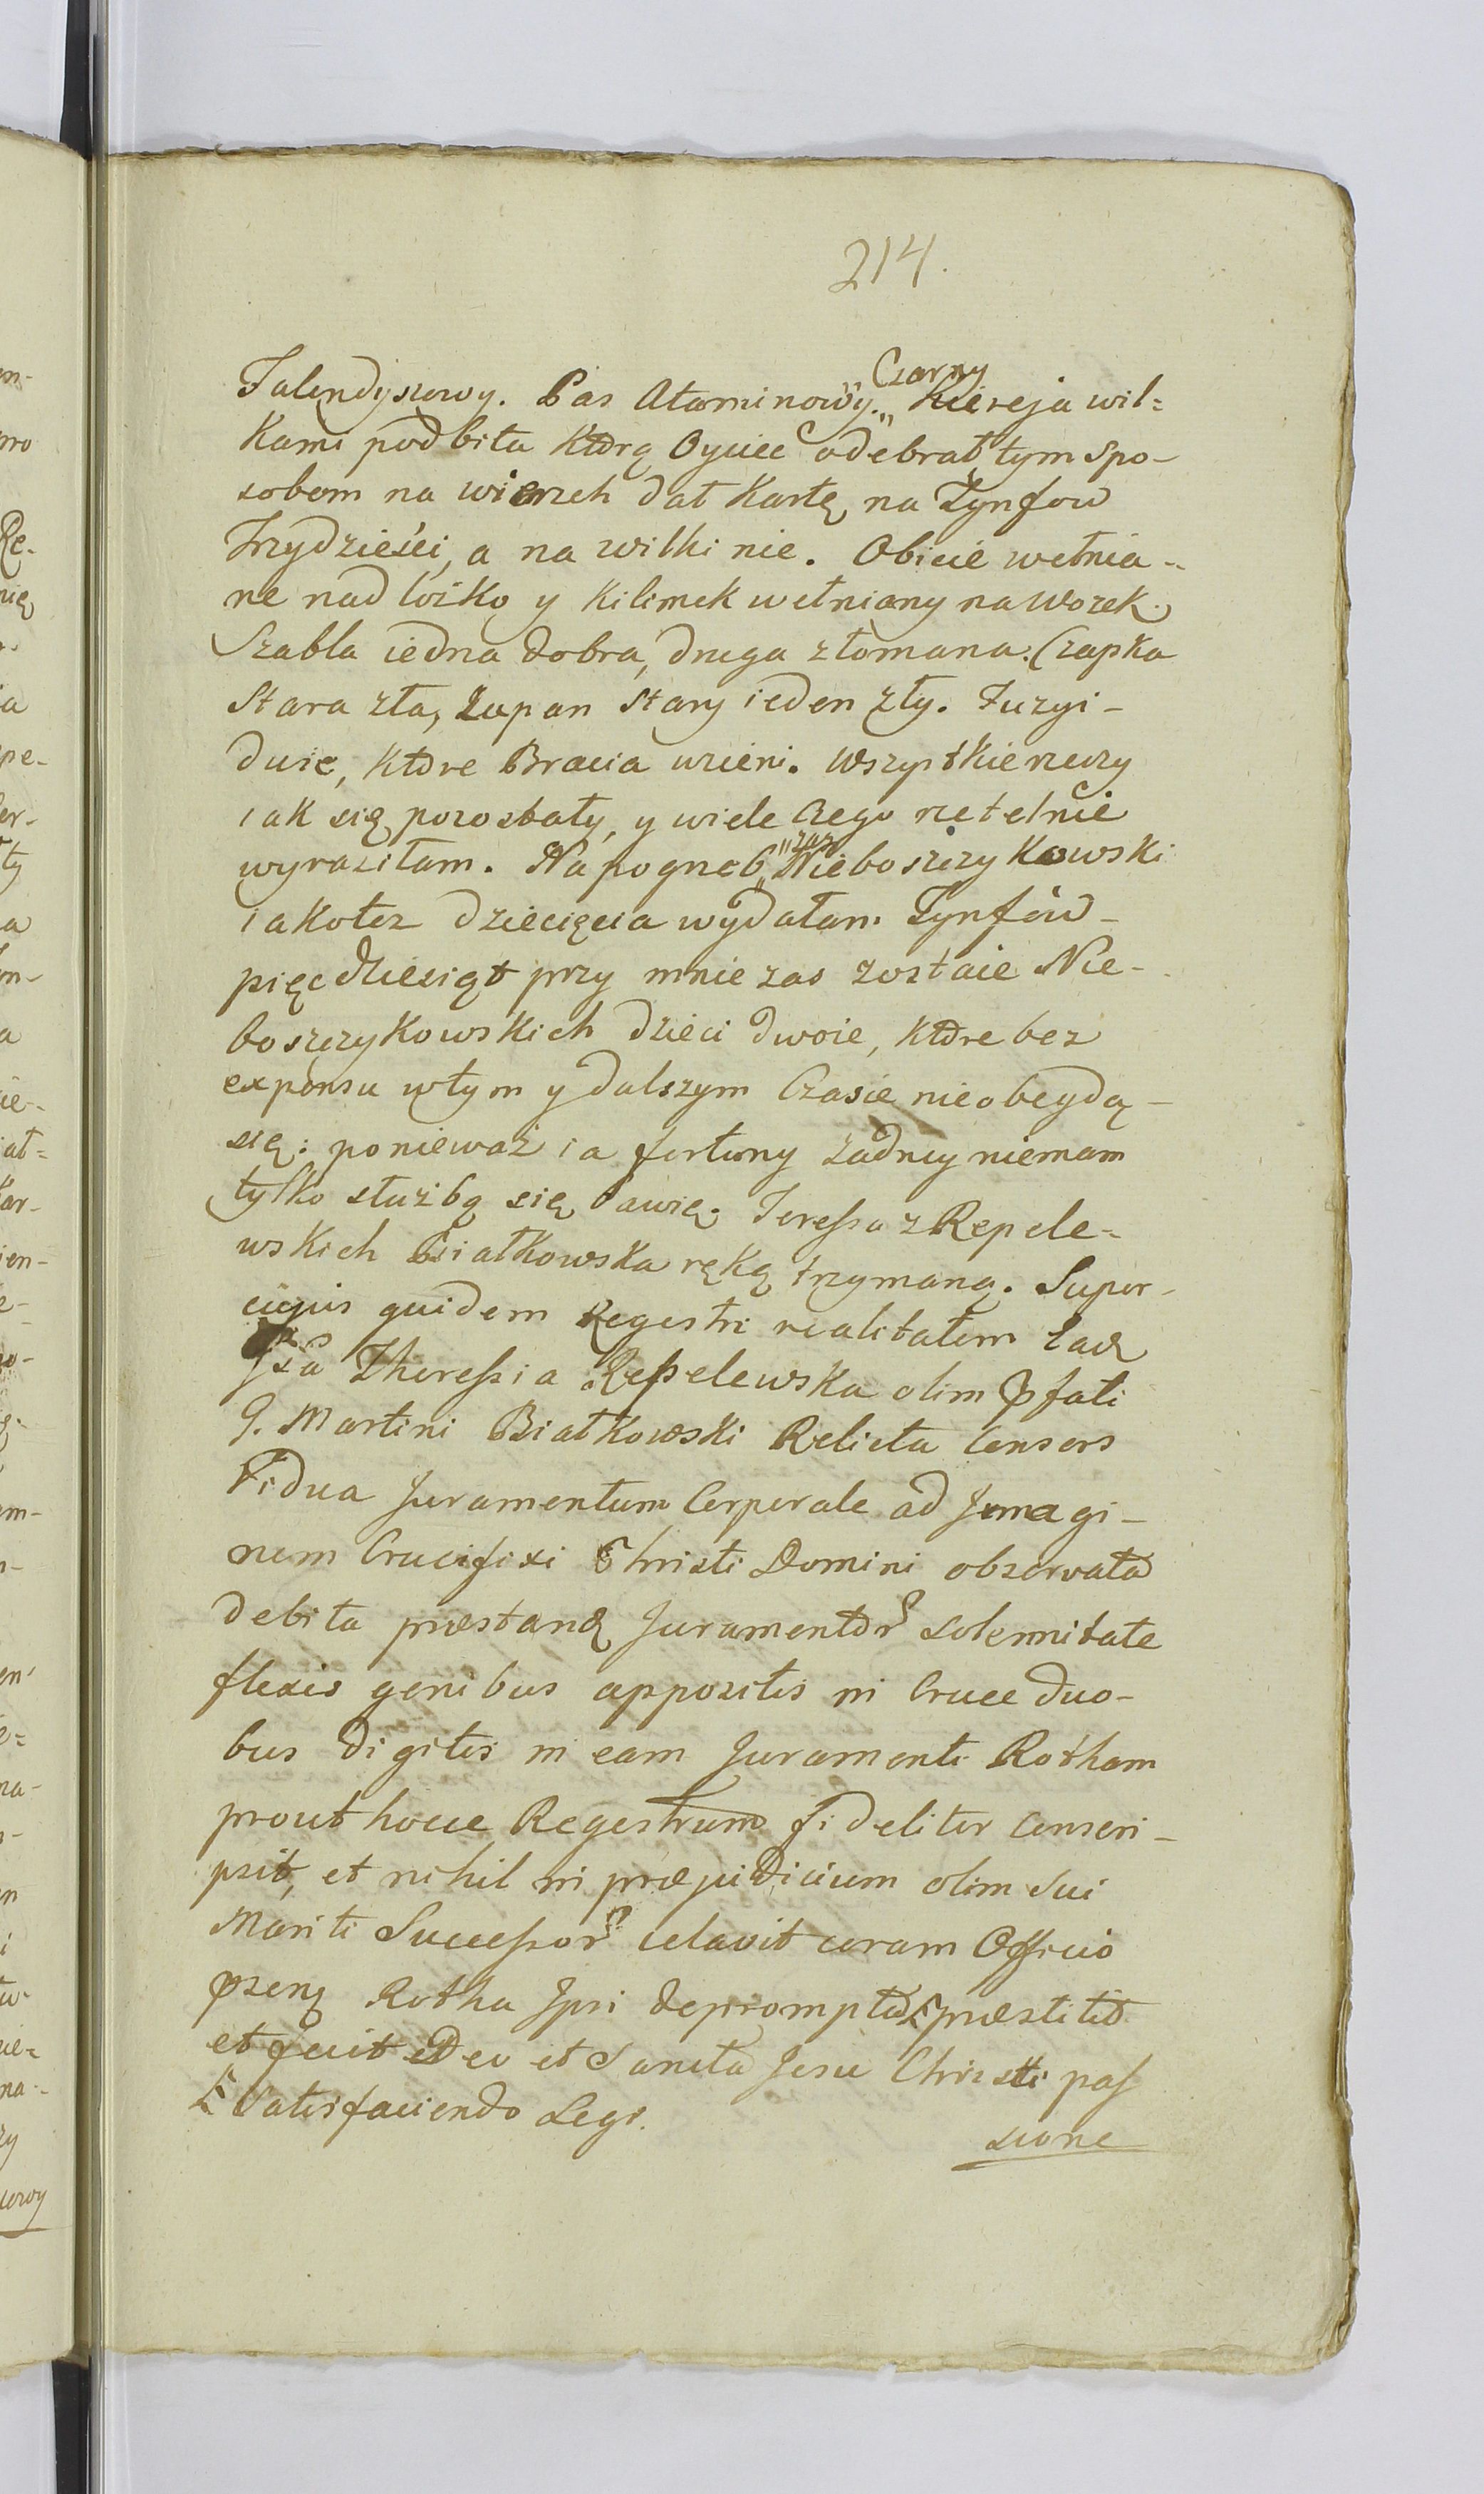 214.
Falendyszowy. Pas Ataminowy. "Czarny" Kiereja wil=
kami podbita którą Oyciec odebrał tym spo-
sobem na wierzch dał kartę na Tynfow
Trzydzieści, a na wilki nie. Obicie wełnia-
ne nad łóżko y kilimek wełniany na wozek.
Szabla iedna dobra, druga złomana. Czapka
stara zła, Żupan stary ieden zły. Fuzyi-
dwie, które Bracia wzieni. Wszystkie rzeczy
iak się pozostały, y wiele czego rzetelnie
wyraziłam. Na pogrzeb "zas" Nieboszczykowski
iakotez dziecięcia wydałam Tynfów-
pięcdziesiąt przy mnie zas zostaie Nie-
boszczykowskich dzieci dwoie, które bez
expensu wtym y dalszym Czasie nieobeydą-
się: ponieważ ia fortuny żadney niemam
tylko służbą się bawię. Teressa z Repele-
wskich Białkowska ręką trzymaną. Super-
cujus quidem Regestri realitatem Eadȝ
Gsa Theressia Repelewska olim Pfati
G. Martini Białkowski Relicta Consors
Vidua Juramentum Corporale ad Jmagi-
nem Crucifixi Christi Domini observata
debita præstandȝ Juramentor solennitate
flexis genibus appositis in Cruce duo-
bus digitis in eam Juramenti Rotham
prout hocce Regestrum fideliter conscri-
psit, et nihil in præjudicium olim sui
Mariti Successor celavit coram Officio
pzenȝ Rotha Jpsi deprompta præstitit
et jecit Deo et Sancta Jesu Christi pas
Satisfaciendo Legi.
sione